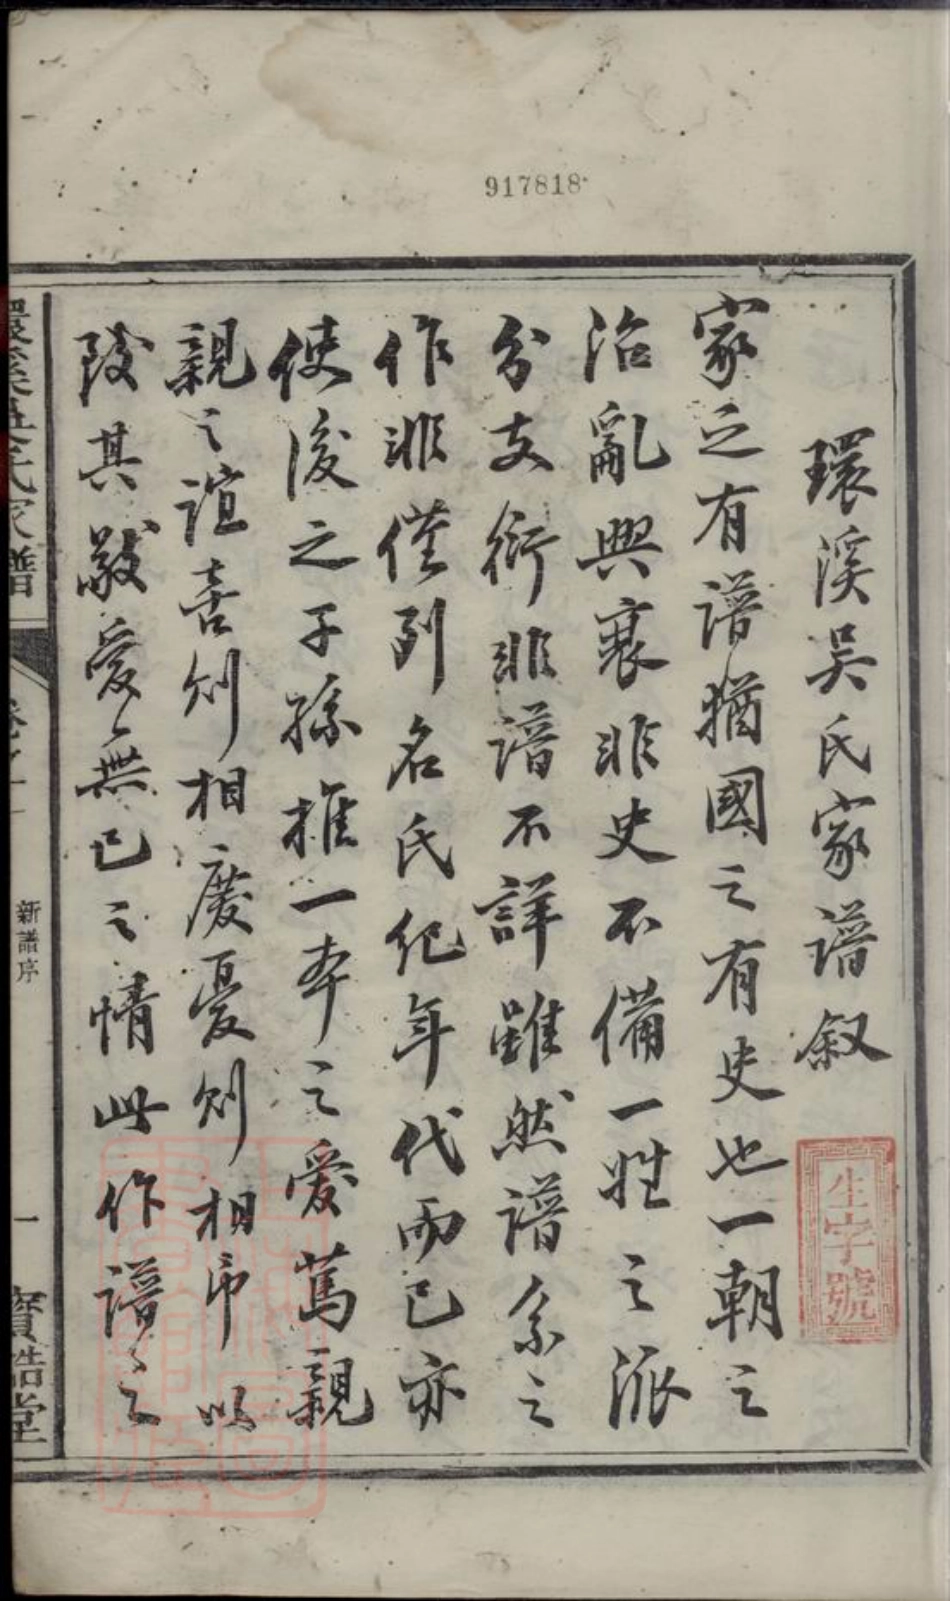 917818
環溪吳氏家譜叙
生字號
家之有譜猶國之有史也一朝之
治亂興衰非史不備一姓之派
分支衍非譜不詳雖然譜系之
作非僅列名氏紀年代而已亦
使後之子孫推一本之愛篤親
親之誼喜則相慶憂則相弔以
致其敬愛無已之情此作譜之
環溪吳氏家譜
卷之一
新譜序
一
寶誥堂